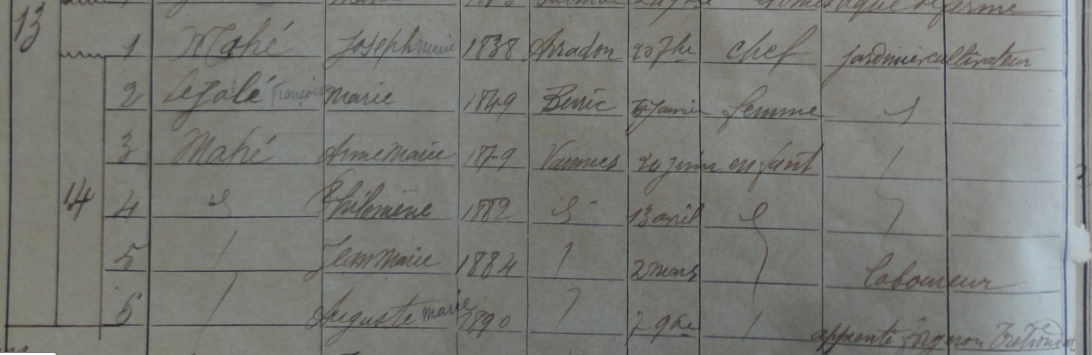 13
1 Mahé Joseph marie 1838 Arradon 20 7bre chef jardinier cultivateur
2 Le Galé Françoise Marie 1849 Berric janvier femme
3 Mahé Anne Marie 1879 Vannes 24 juin enfant
14
4 Philomène 1882 13 avril
5 Jean Marie 1884 2 mars laboureur
6 Auguste marie 1890 7 9bre apprenti